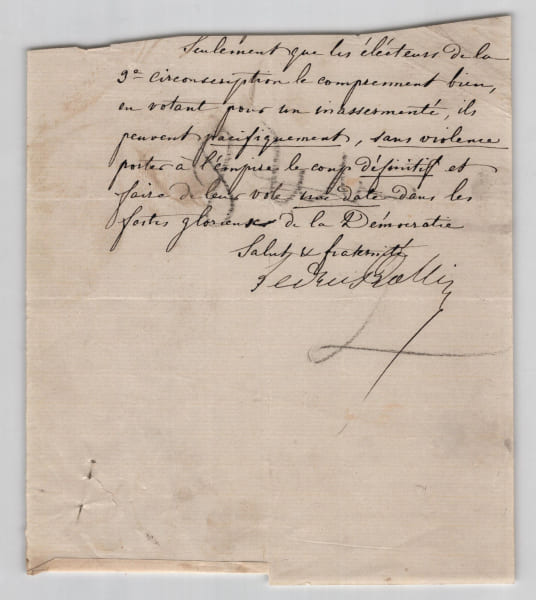 Seulement que les électeurs de la
3e circonscription le comprennent bien,
en votant pour un inassermenté, ils
peuvent pacifiquement, sans violence
porter à l'empire le coup définitif et
faire de leur vote une date dans les
fastes glorieux de la Démocratie
Salut & fraternité
Ledru Rollin